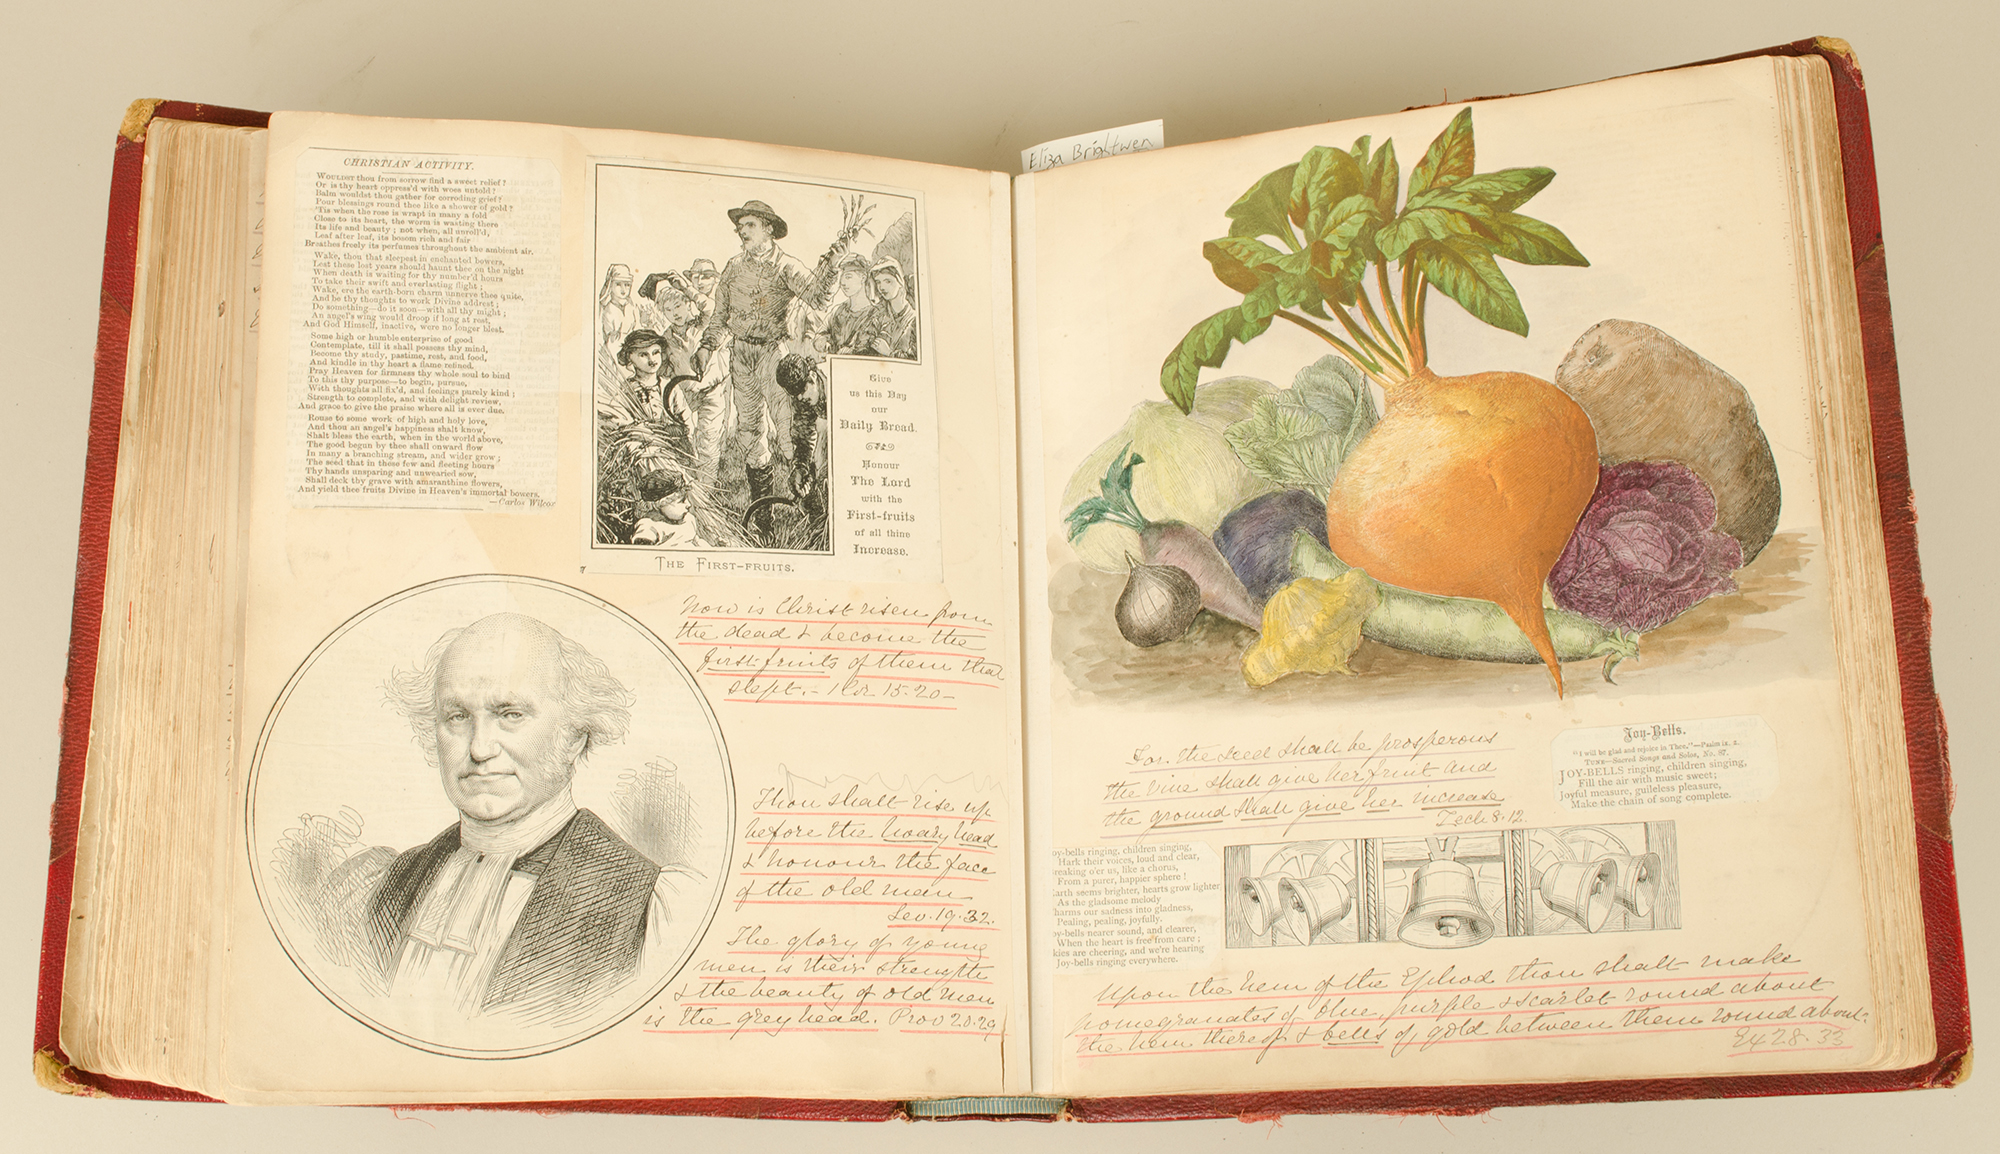 Eliza Brightwen
CHRISTIAN ACTIVITY.
WOULDST thou from sorrow find a sweet relief?
Or is thy heart oppress'd with woes untold?
Balm wouldst thou gather for corroding grief?
Pour blessings round thee like a shower of gold?
'Tis when the rose is wrapt in many a fold
Close to its heart, the worm is wasting there
Its life and beauty; not when, all unroll'd,
Leaf after leaf, its bosom rich and fair
Breathes freely its perfumes throughout the ambient air.
Wake, thou that sleepest in enchanted bowers,
Lest these lost years should haunt thee on the night
When death is waiting for thy number'd hours
To take their swift and everlasting flight;
Wake, ere the earth-born charm unnerve thee quite,
And be thy thoughts to work Divine addrest;
Do something—do it soon—with all thy might;
An angel's wing would droop if long at rest,
And God Himself, inactive, were no longer blest.
Some high or humble enterprise of good
Contemplate, till it shall possess thy mind,
Become thy study, pastime, rest, and food,
And kindle in thy heart a flame refined.
Pray Heaven for firmness thy whole soul to bind
To this thy purpose—to begin, pursue,
With thoughts all fix'd, and feelings purely kind;
Strength to complete, and with delight review,
And grace to give the praise where all is ever due.
Rouse to some work of high and holy love,
And thou an angel's happiness shalt know,
Shalt bless the earth, when in the world above,
The good begun by thee shall onward flow
In many a branching stream, and wider grow;
The seed that in these few and fleeting hours
Thy hands unsparing and unwearied sow,
Shall deck thy grave with amaranthine flowers,
And yield thee fruits Divine in Heaven's immortal bowers.
—Carlos Wilcox
Give
us this Day
our
Daily Bread.
Honour
The Lord
with the
First-fruits
of all thine
Increase.
THE FIRST-FRUITS.
Now is Christ risen from
the dead & become the
first-fruits of them that
slept. – 1 Cor 15.20 –
Thou shalt rise up
before the hoary head
& honour the face
of the old man
Lev. 19.32.
The glory of young
men is their strength
& the beauty of old men
is the grey head. Prov 20.29
For the seed shall be prosperous
the vine shall give her fruit and
the ground shall give her increase
Zech 8.12.
Joy-Bells.
"I will be glad and rejoice in Thee."—Psalm ix. 2.
TUNE—Sacred Songs and Solos, No. 87.
JOY-BELLS ringing, children singing,
Fill the air with music sweet;
Joyful measure, guileless pleasure,
Make the chain of song complete.
oy-bells ringing, children singing,
Hark their voices, loud and clear,
reaking o'er us, like a chorus,
From a purer, happier sphere!
arth seems brighter, hearts grow lighter
As the gladsome melody
harms our sadness into gladness,
Pealing, pealing, joyfully.
oy-bells nearer sound, and clearer,
When the heart is free from care;
kies are cheering, and we're hearing
Joy-bells ringing everywhere.
Upon the hem of the Ephod thou shalt make
pomegranates of blue, purple & scarlet round about
the hem thereof & bells of gold between them round about.
Ex 28.33